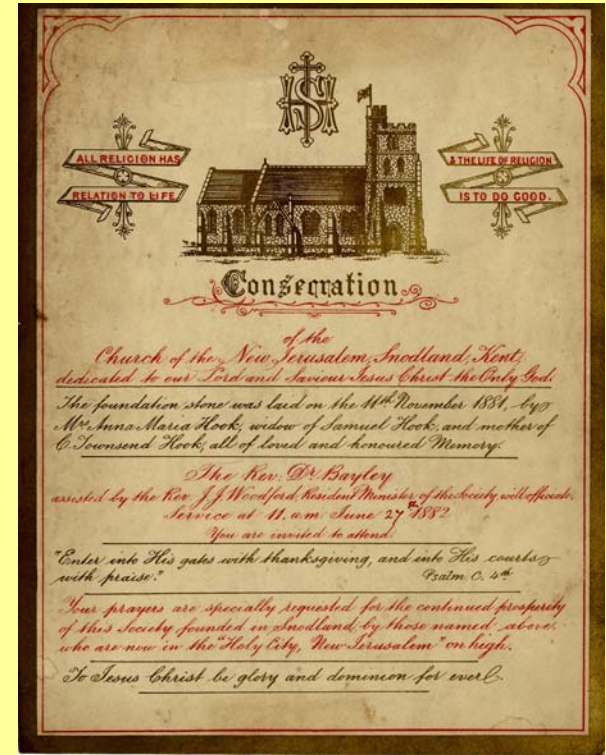 IHS
ALL RELIGION HAS
RELATION TO LIFE
& THE LIFE OF RELIGION
IS TO DO GOOD.
Consecration
of the
Church of the New Jerusalem, Snodland, Kent,
dedicated to our Lord and Saviour Jesus Christ the Only God.
The foundation stone was laid on the 11th November 1881, by
Mrs Anna Maria Hook, widow of Samuel Hook, and mother of
C. Townsend Hook, all of loved and honoured Memory.
The Rev: Dr Bayley
assisted by the Rev. J. J. Woodford, Resident Minister of the Society, will officiate.
Service at 11. a.m. June 27th 1882
You are invited to attend.
"Enter into His gates with thanksgiving, and into His courts
with praise." Psalm C. 4th
Your prayers are specially requested for the continued prosperity
of this Society founded in Snodland, by those named above,
who are now in the "Holy City, New Jerusalem" on high.
To Jesus Christ be glory and dominion for ever &.